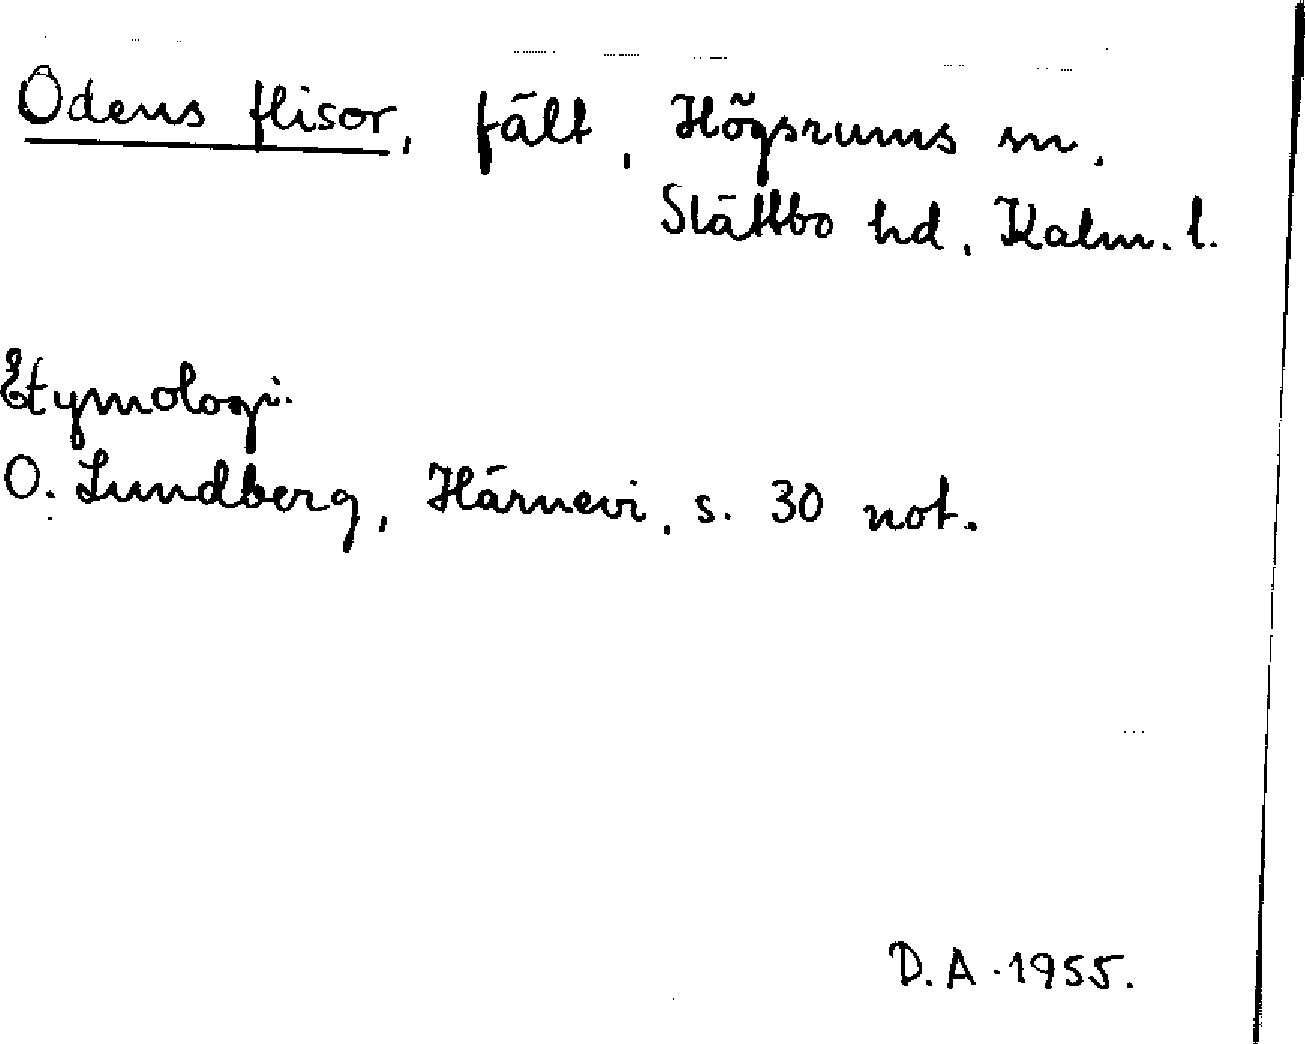 Odens flisor, fält, Högsrums sn,
Slättbo hd, Kalm. l.
Etymologi:
O. Lundberg, Härnevi, s. 30 not.
D.A. 1955.